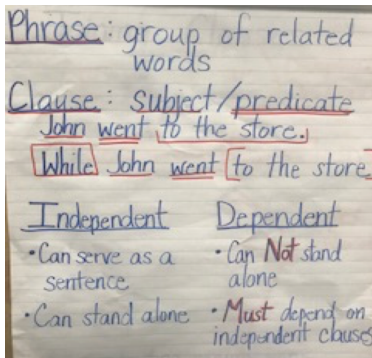 Phrase: group of related
words
Clause: subject/predicate
John went to the store.
While John went to the store
Independent
• Can serve as a
sentence
• Can stand alone
Dependent
• Can Not stand
alone
• Must depend on
independent clauses